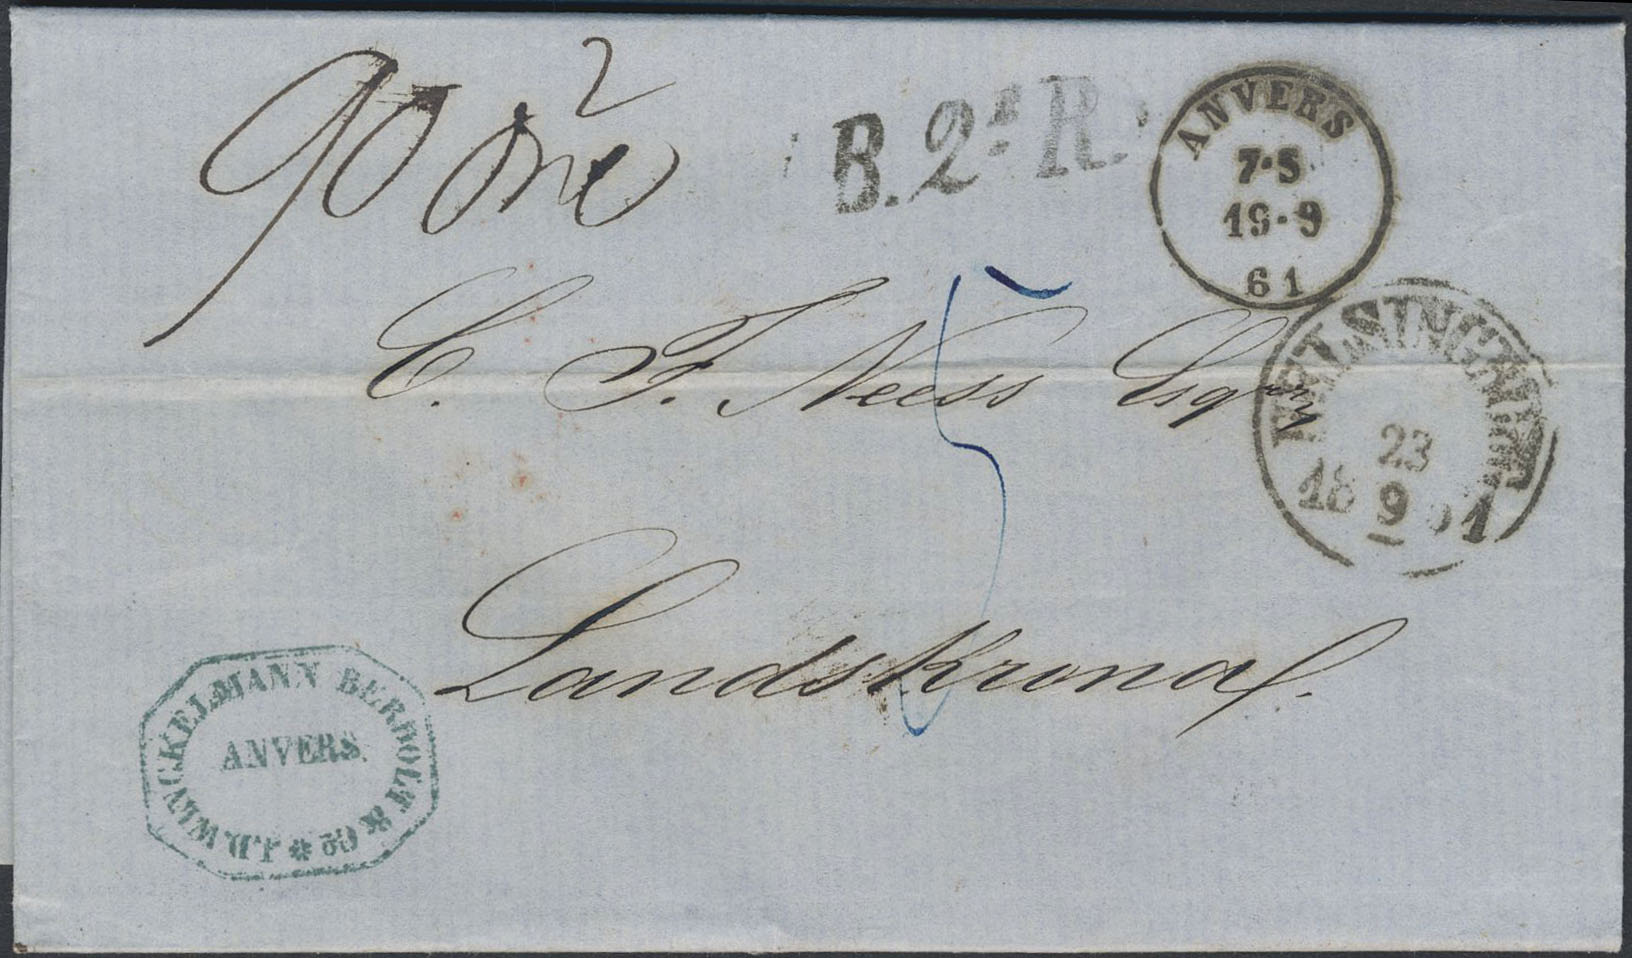 90 öre
2
B. 2ˢ R.
ANVERS
7-S
19-9
61
C. F. Neess Esqr
HELSINGBORG
23
18 9 61
5
Landskrona.
J.D. WINCKELMANN BERDOLT & Co
ANVERS.